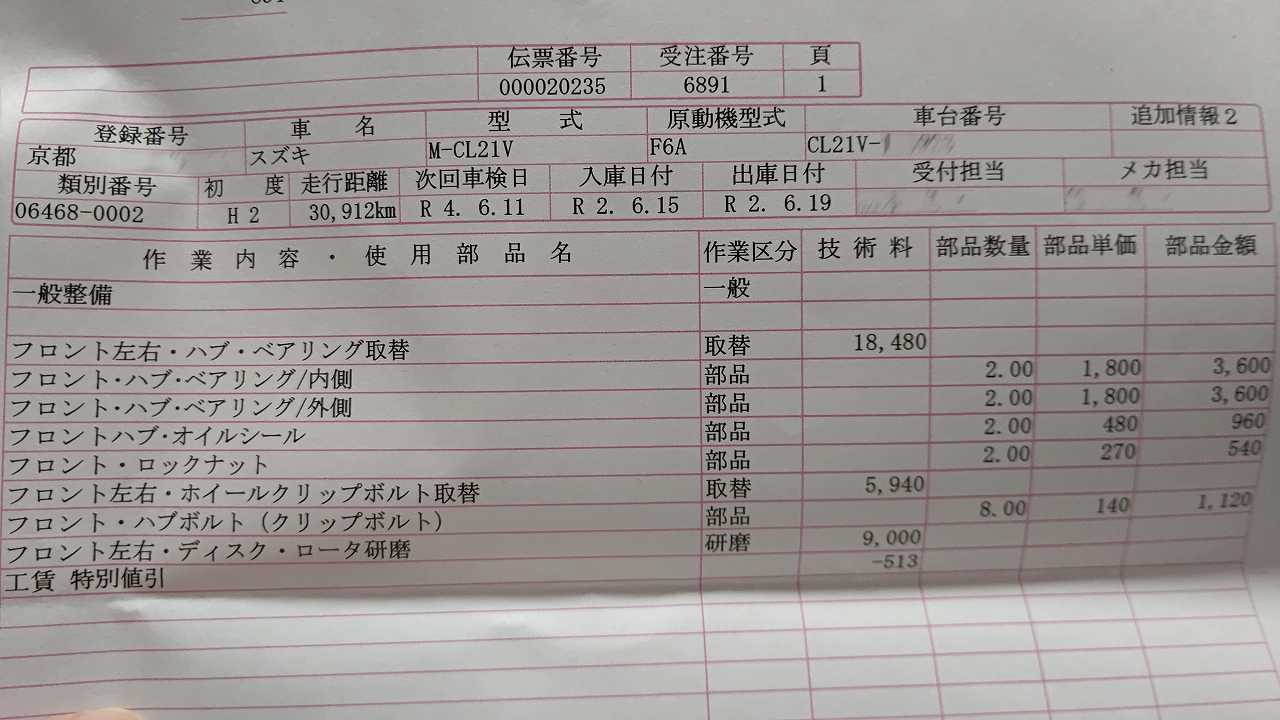 伝票番号 受注番号 頁
000020235 6891 1
登録番号 車名 型式 原動機型式 車台番号 追加情報2
京都 スズキ M-CL21V F6A CL21V-
類別番号 初度 走行距離 次回車検日 入庫日付 出庫日付 受付担当 メカ担当
06468-0002 H 2 30,912km R 4. 6.11 R 2. 6.15 R 2. 6.19
作業内容・使用部品名 作業区分 技術料 部品数量 部品単価 部品金額
一般整備 一般
フロント左右・ハブ・ベアリング取替 取替 18,480
フロント・ハブ・ベアリング/内側 部品 2.00 1,800 3,600
フロント・ハブ・ベアリング/外側 部品 2.00 1,800 3,600
フロントハブ・オイルシール 部品 2.00 480 960
フロント・ロックナット 部品 2.00 270 540
フロント左右・ホイールクリップボルト取替 取替 5,940
フロント・ハブボルト（クリップボルト） 部品 8.00 140 1,120
フロント左右・ディスク・ロータ研磨 研磨 9,000
工賃 特別値引 -513